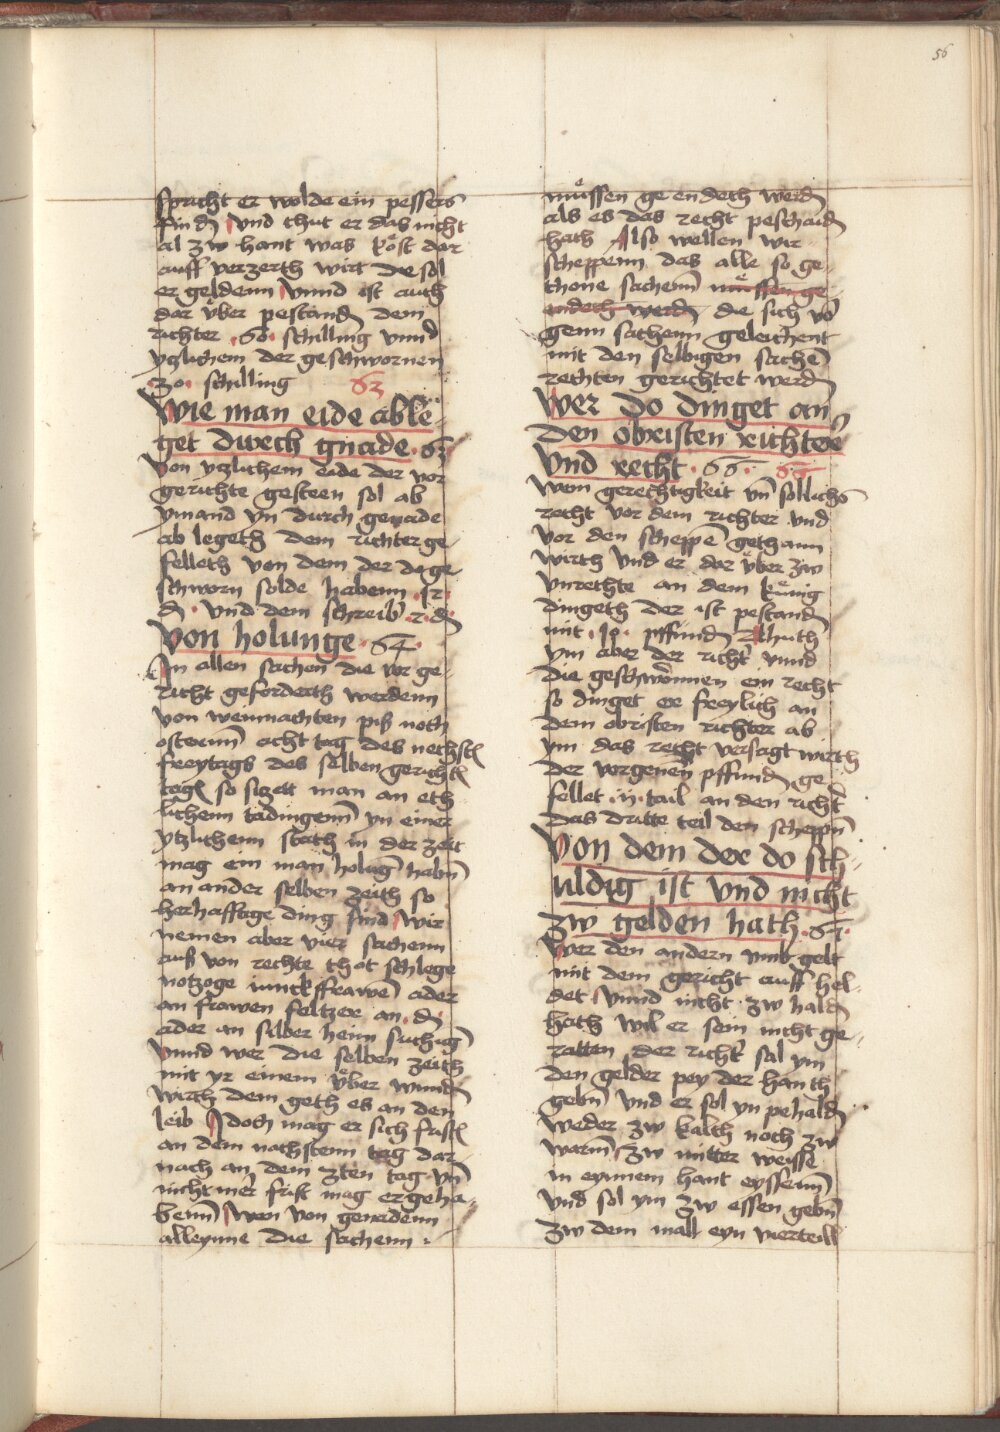 56
spricht er wolde ein pessers
find̄ vnd thut er das nicht
al zw hant was kost dar
auff verzerth wirt die sol
er geldenn vnnd ist auch
dar vͤber pestand̄ dem
richter .60. schilling vnnd
yglichem der geschwornen
.30. schilling 63
Wie man eide able-
get durch gnade .63.
Von yglichem eide der vor
gerichte gesteen sol ab
ymand yn durch genade
ab legeth dem richter ge-
felleth von dem der do ge-
schworn solde habenn .12.
d̄. vnd dem schreib̄ .2. d̄
Von holunge .64.
In allen sachen die vor ge-
richt geforderth werdenn
von weinnachten piß noch
osterenn acht tag des nechstē
freytags des selben gerichtē
tagē so sizett man an eth-
lichenn tadingenn̄ yn einer
ytzlichenn stath in der zeit
mag ein man holuḡ habn̄
an ander selben zeith so
herhafftige ding sind wir
nemen aber vier sachenn
auß von rechte thot schlege
notzoge iunckffrawē ader
an frawen feltzer an. d̄.
ader an silber heim suchuḡ
vnnd wer die selben zeith
mit yr einem vͤber wund̄
wirth dem geth es an den
leib Idoch mag er sich fristē
an dem nachstenn tag dar
nach an dem 3ten tag vn̄
nicht mer frist mag er geha-
benn̄ wen von genadenn
alleynne die sachenn.
muͤssen ge endech werd̄
als es das recht peschaid̄
hath Also wellen wir
scheppenn das alle so ge-
thone sachenn̄ muͤssen ge
endech werd̄ die sich vō
genn sachenn geleichent
mit den selbigen sachē
rechten gerichtet werd̄
Wer do dinget an
den obristen richterē
vnd recht .66. 66
Wem gerechtigkeit vn̄ sollichs
recht vor dem richter vnd
vor den scheppē gethann
wirth vnd er dar vͤber zw
vnrechte an dem kuͤnig
dingeth der ist pestand̄
mit .10. pffund̄ Thuth
ym aber der richt̄ vnnd
die geschwornnen ein recht
so dinget er freylich an
dem obristen richter ab
ym das recht versagt wirth
der vorgenen̄ pffund̄ ge-
fellet .ii. tail an den richt̄
das dritte teil den scheppn̄
Von dem der do sch-
uldig ist vnd nicht
zw gelden hath .67.
Wer den andern vmb gelt
mit dem gericht auff hel-
det vnnd nicht zw hald̄
hath wil er sein nicht ge-
ratten der richt̄ sal ym
den gelder pey der hanth
gebn̄ vnd er sol yn pehald̄
weder zw kalth noch zw
warm̄ zw mitter weisse
in eynnem hant eyssenn̄
vnd sol ym zw essen gebn̄
zw dem mall eyn vierteill